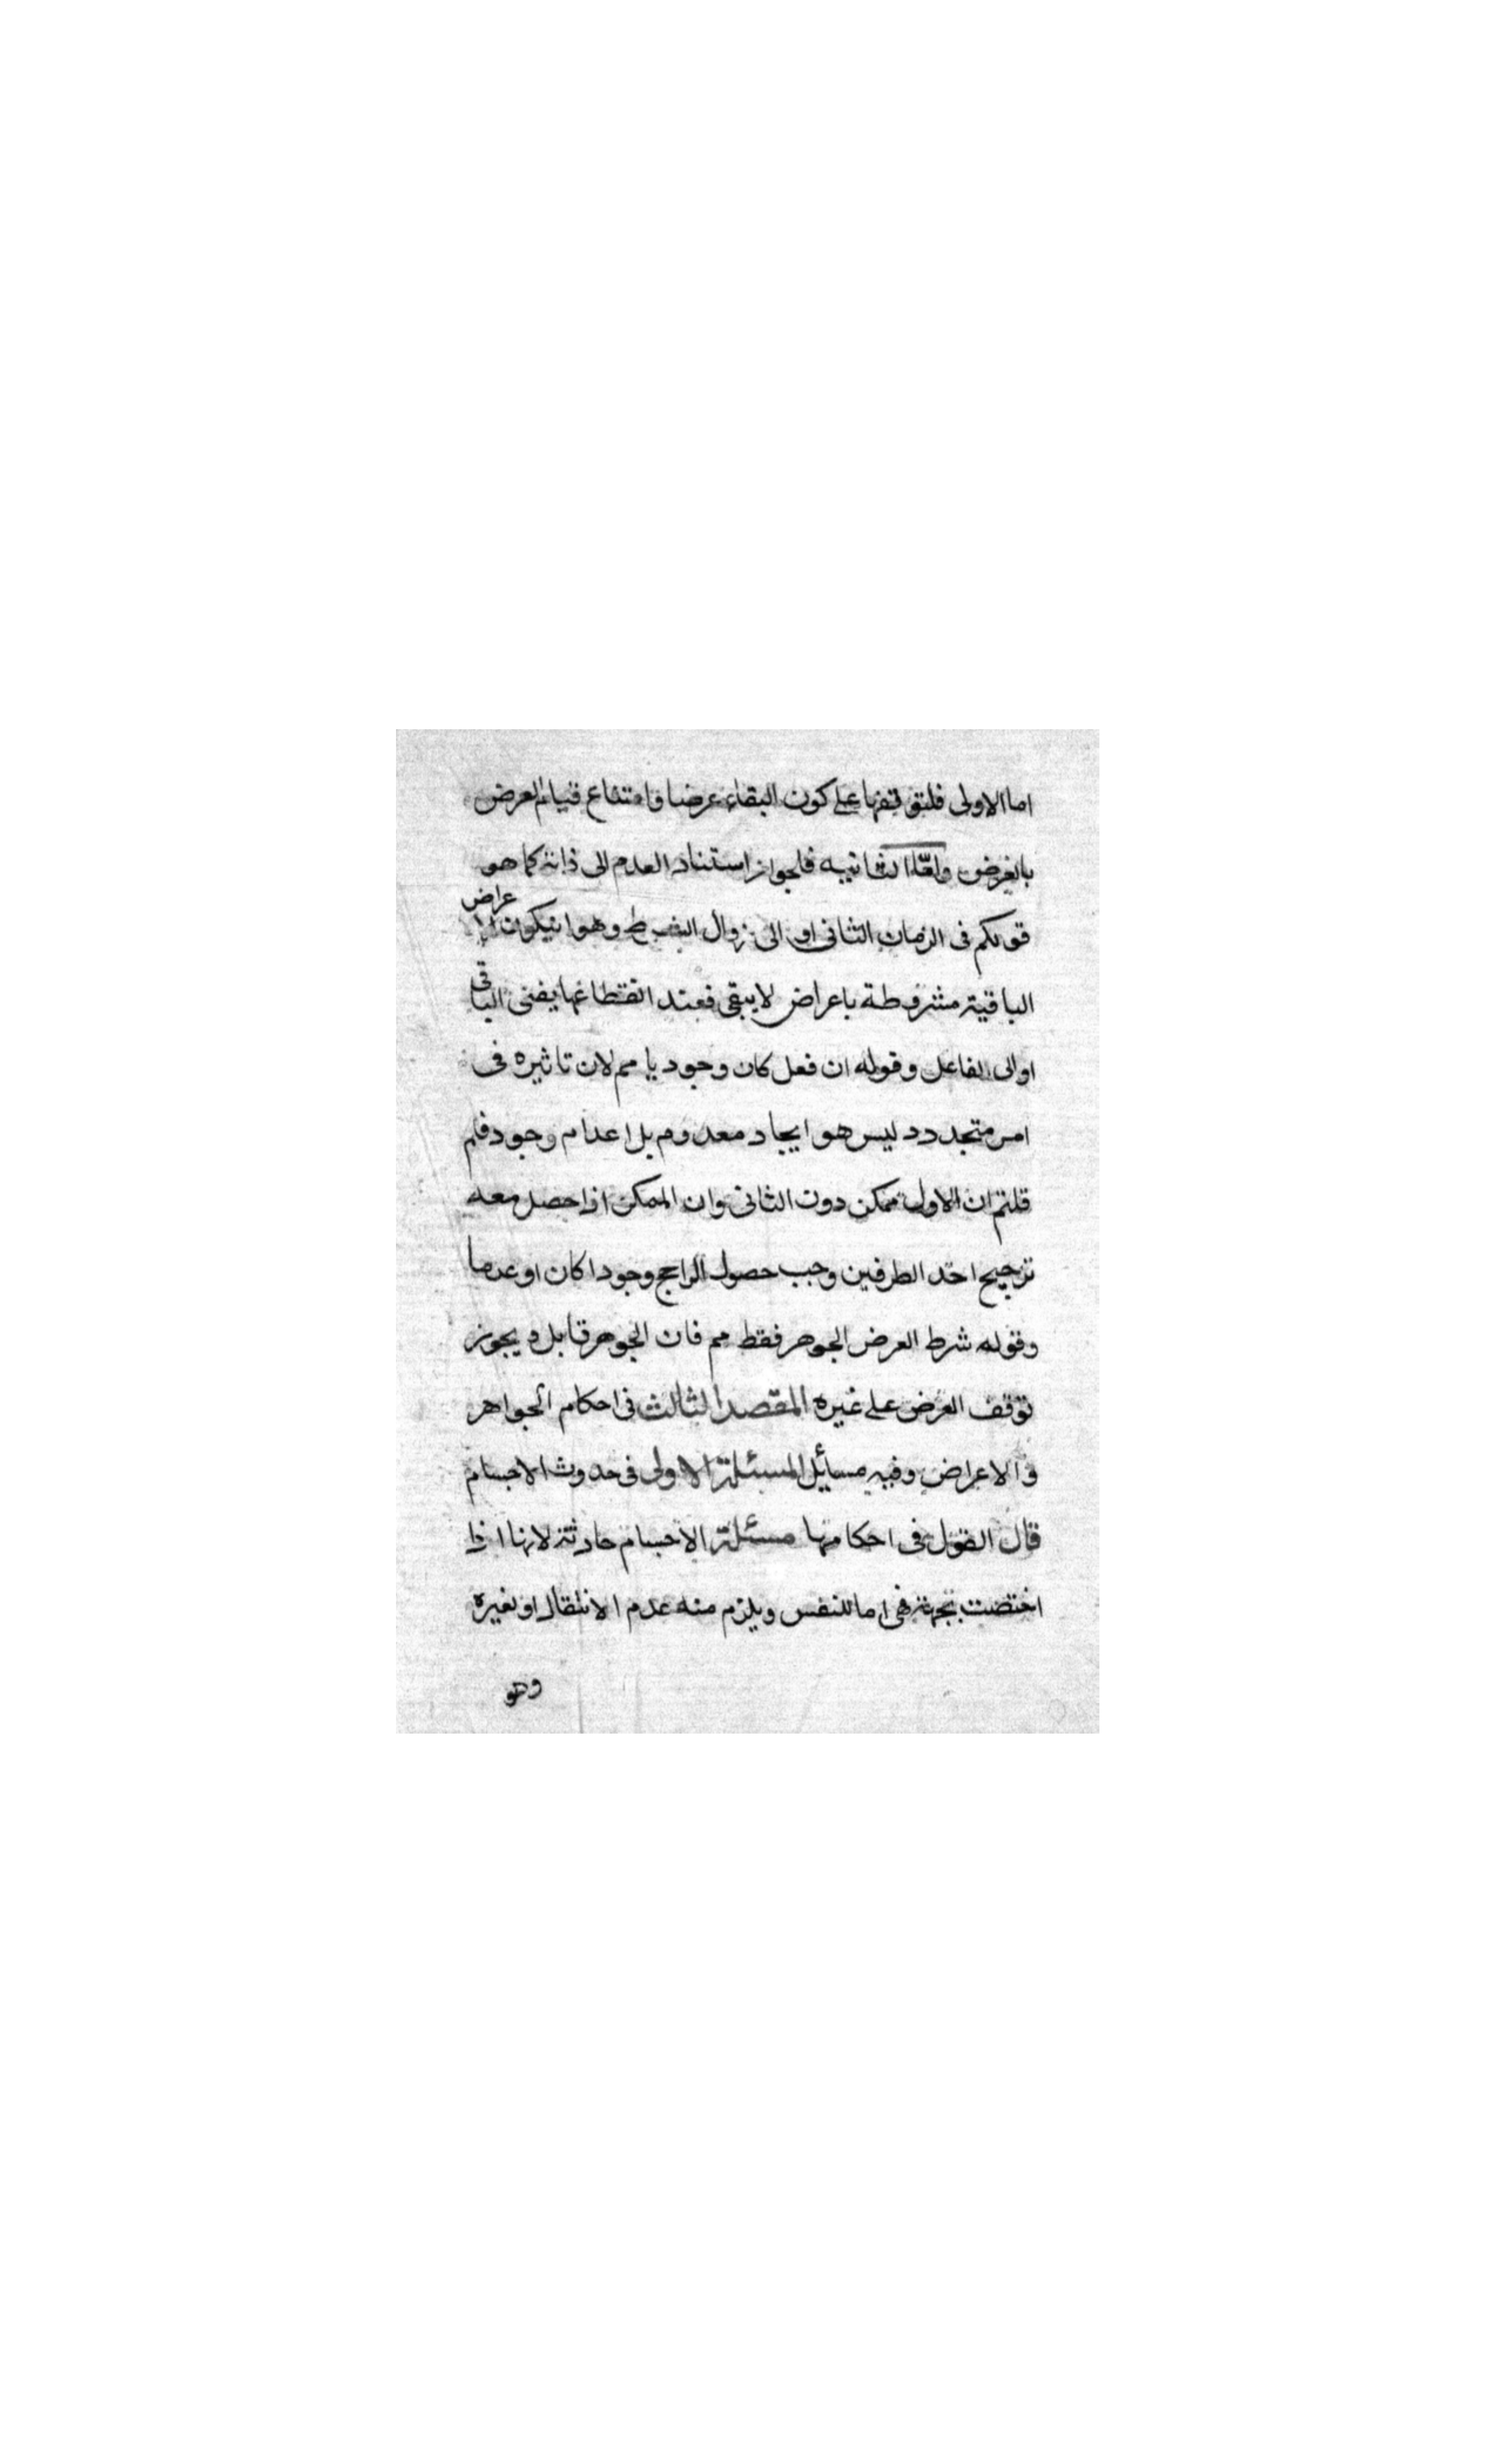 اما الاولى فلتوقفها على كون البقاء عرضا وامتناع قيام العرض
بالعرض واما الثانيه فلجواز استناد العدم الى ذاته كما هو
قولكم فى الزمان الثانى او الى زوال الشرط وهو ان يكون الاعراض
الباقية مشروطة باعراض لا يبقى فعند انقطاعها يفنى الباقى
او الى الفاعل وقوله ان فعل كان وجوديا مم لان تاثيره فى
امر متجدد ليس هو ايجاد معدوم بل اعدام وجود فلم
قلتم ان الاول ممكن دون الثانى وان الممكن اذا حصل معه
ترجيح احد الطرفين وجب حصول الراجح وجودا كان او عدما
وقوله شرط العرض الجوهر فقط مم فان الجوهر قابل و يجوز
توقف العرض على غيره المقصد الثالث فى احكام الجواهر
والاعراض وفيه مسايل المسئلة الاولى فى حدوث الاجسام
قال القول فى احكامها مسئلة الاجسام حادثة لانها اذا
اختصت بجهة فهى اما للنفس ويلزم منه عدم الانتقال او لغيره
وهو